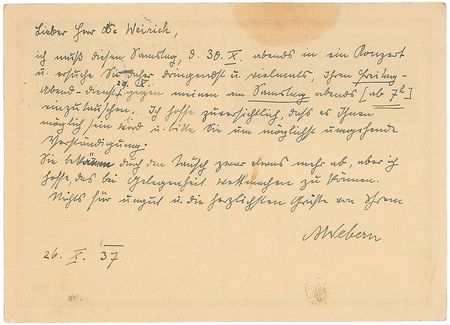 Lieber Herr Dr Weirich,
ich muß diesen Samstag, d. 30. X. abends in ein Konzert
u. ersuche Sie daher dringendst u. vielmals, Ihren Freitag-
Abend-dienst 29. X. gegen meinen am Samstag abends [ab 7h]
einzutauschen. Ich hoffe zuversichtlich, daß es Ihnen
möglich sein wird u. bitte Sie um möglichst umgehende
Verständigung.
Sie bekämen durch den Tausch zwar etwas mehr ab, aber ich
hoffe, das bei Gelegenheit wettmachen zu können.
Nichts für ungut u. die herzlichsten Grüße an Ihrem
AWebern
26. X. 37